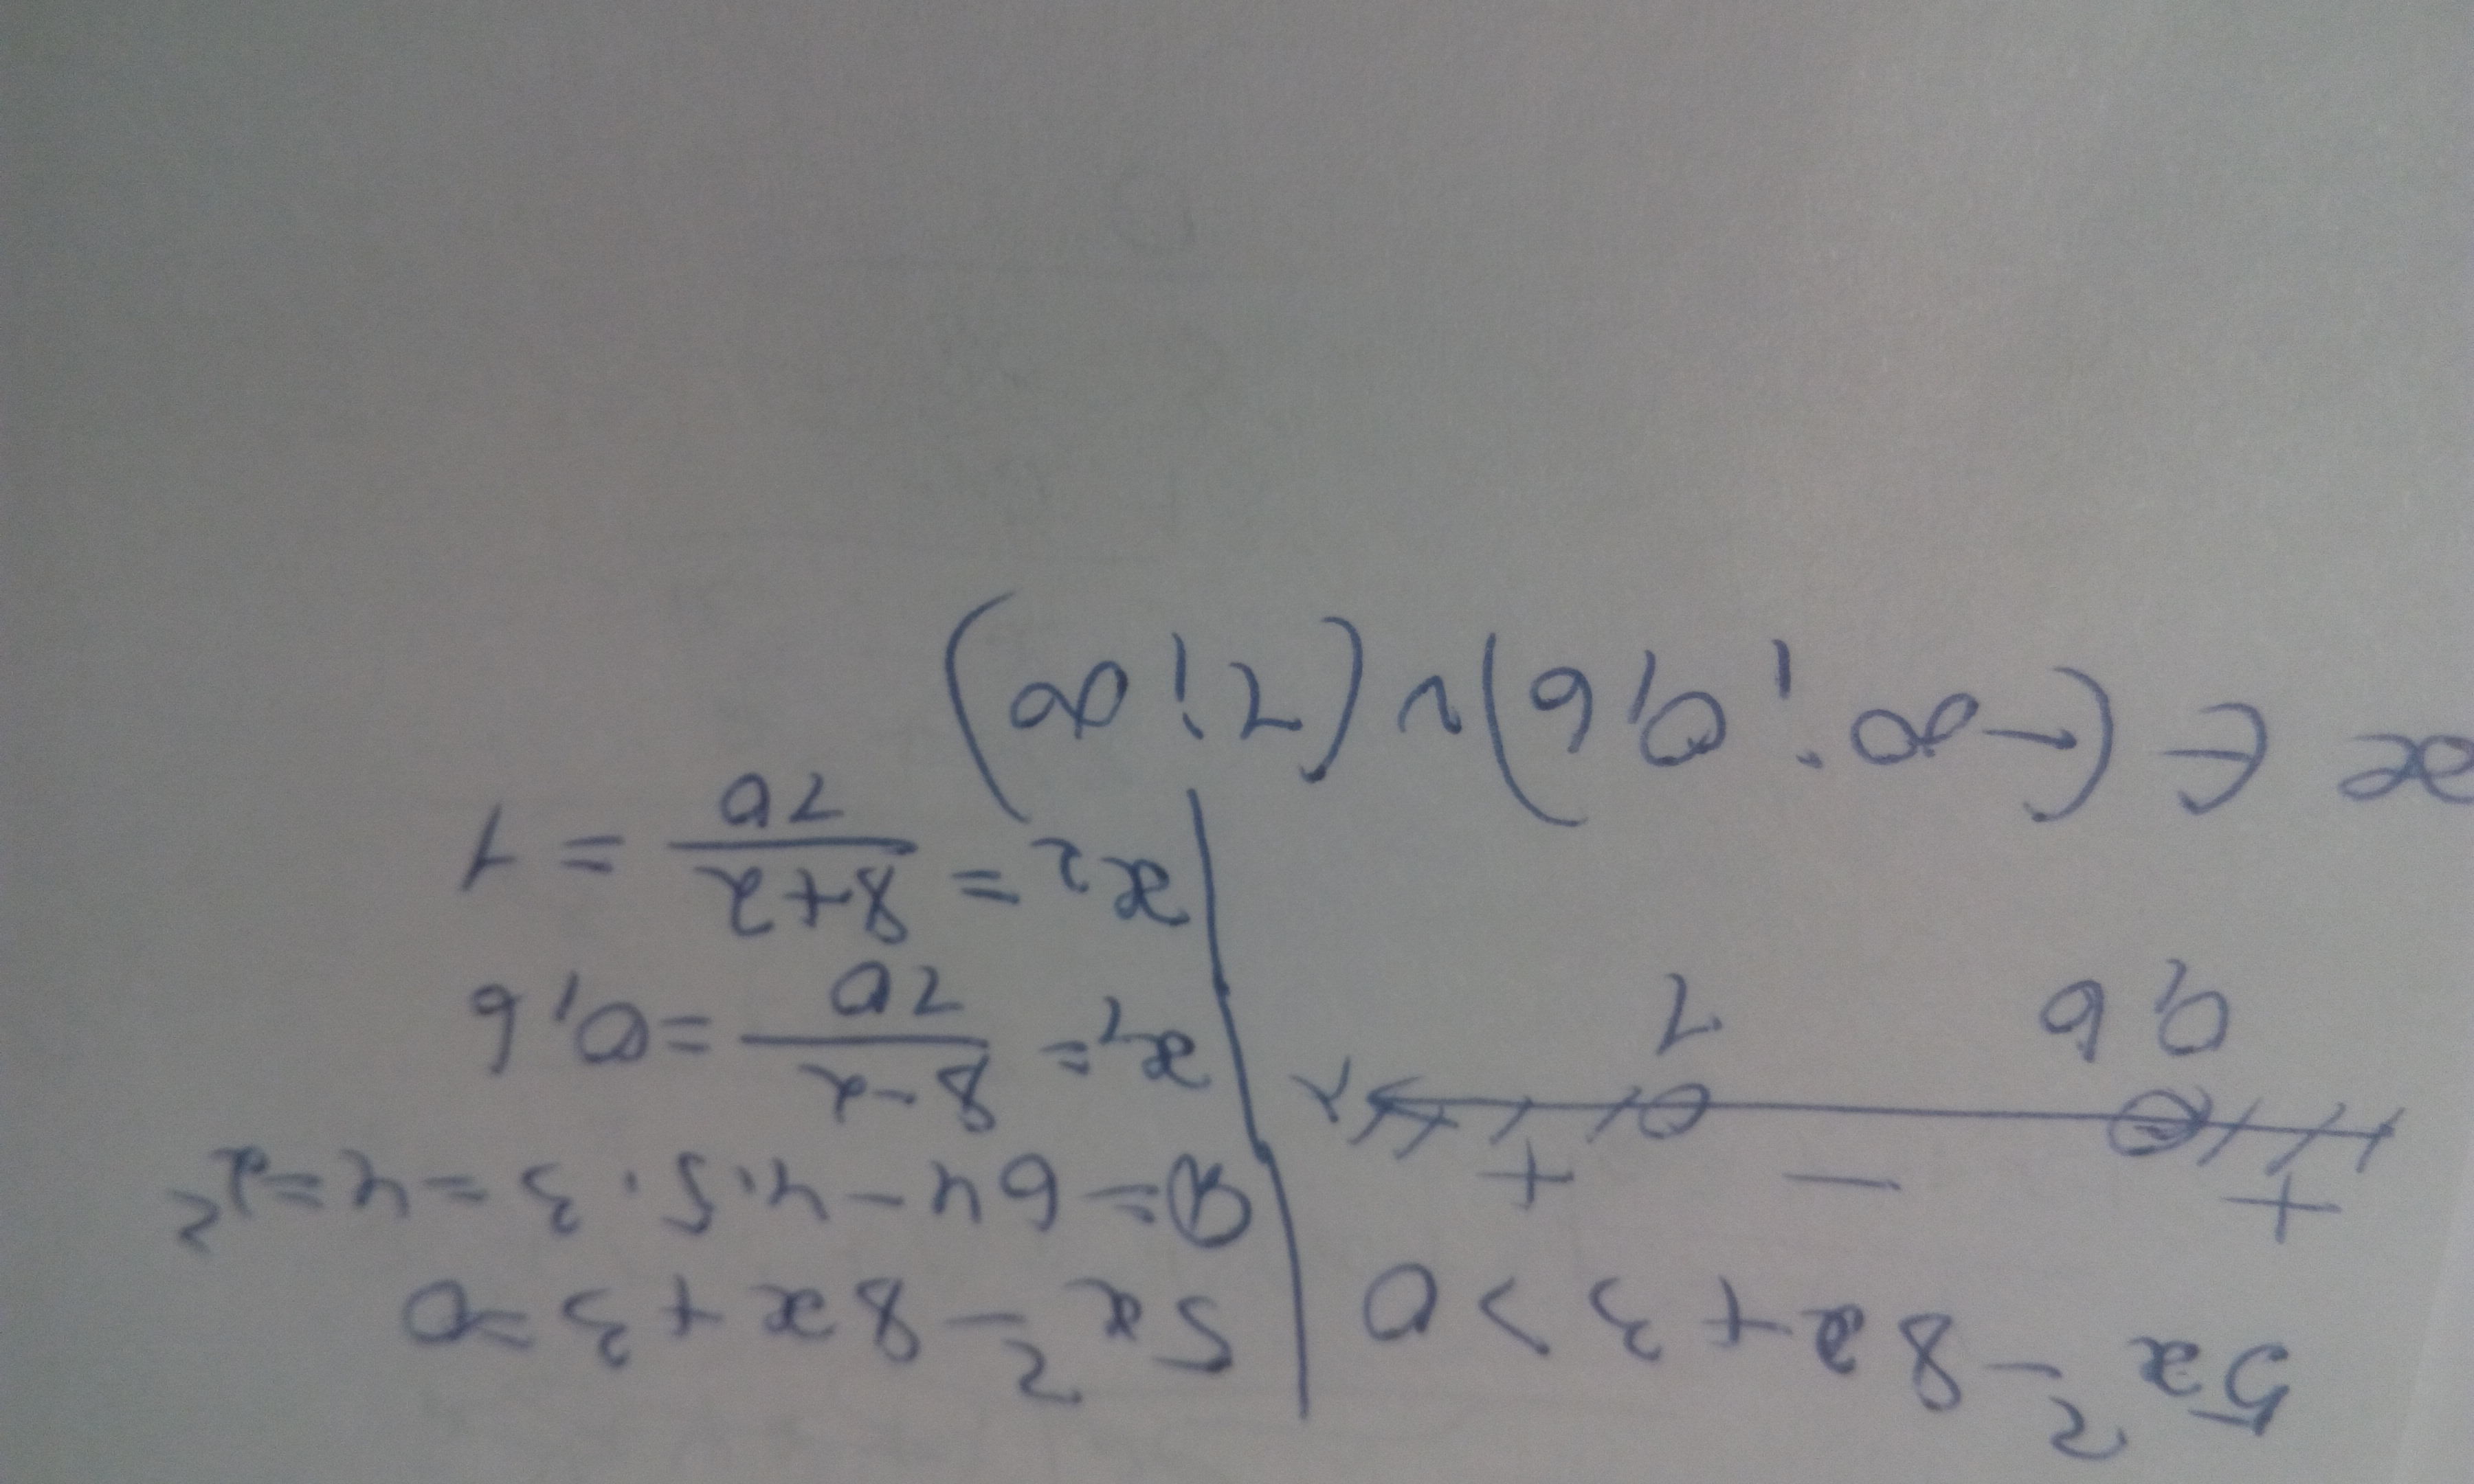 5x² - 8x + 3 > 0
+ - +
0,6 1 x
x ∈ (-∞; 0,6) ∪ (1; ∞)
5x² - 8x + 3 = 0
D = 64 - 4·5·3 = 4 = 2²
x₁ = (8-2)/10 = 0,6
x₂ = (8+2)/10 = 1